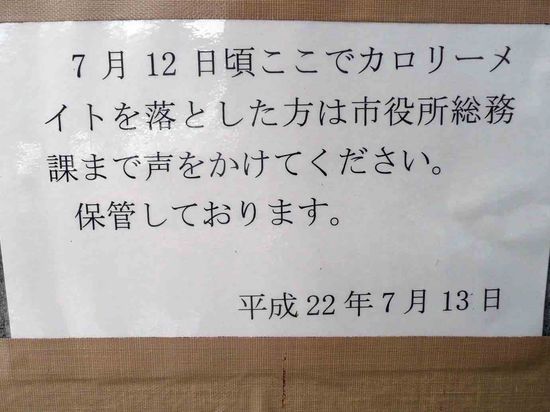 ７月 12 日頃ここでカロリーメ
イトを落とした方は市役所総務
課まで声をかけてください。
保管しております。
平成 22 年 7 月 13 日